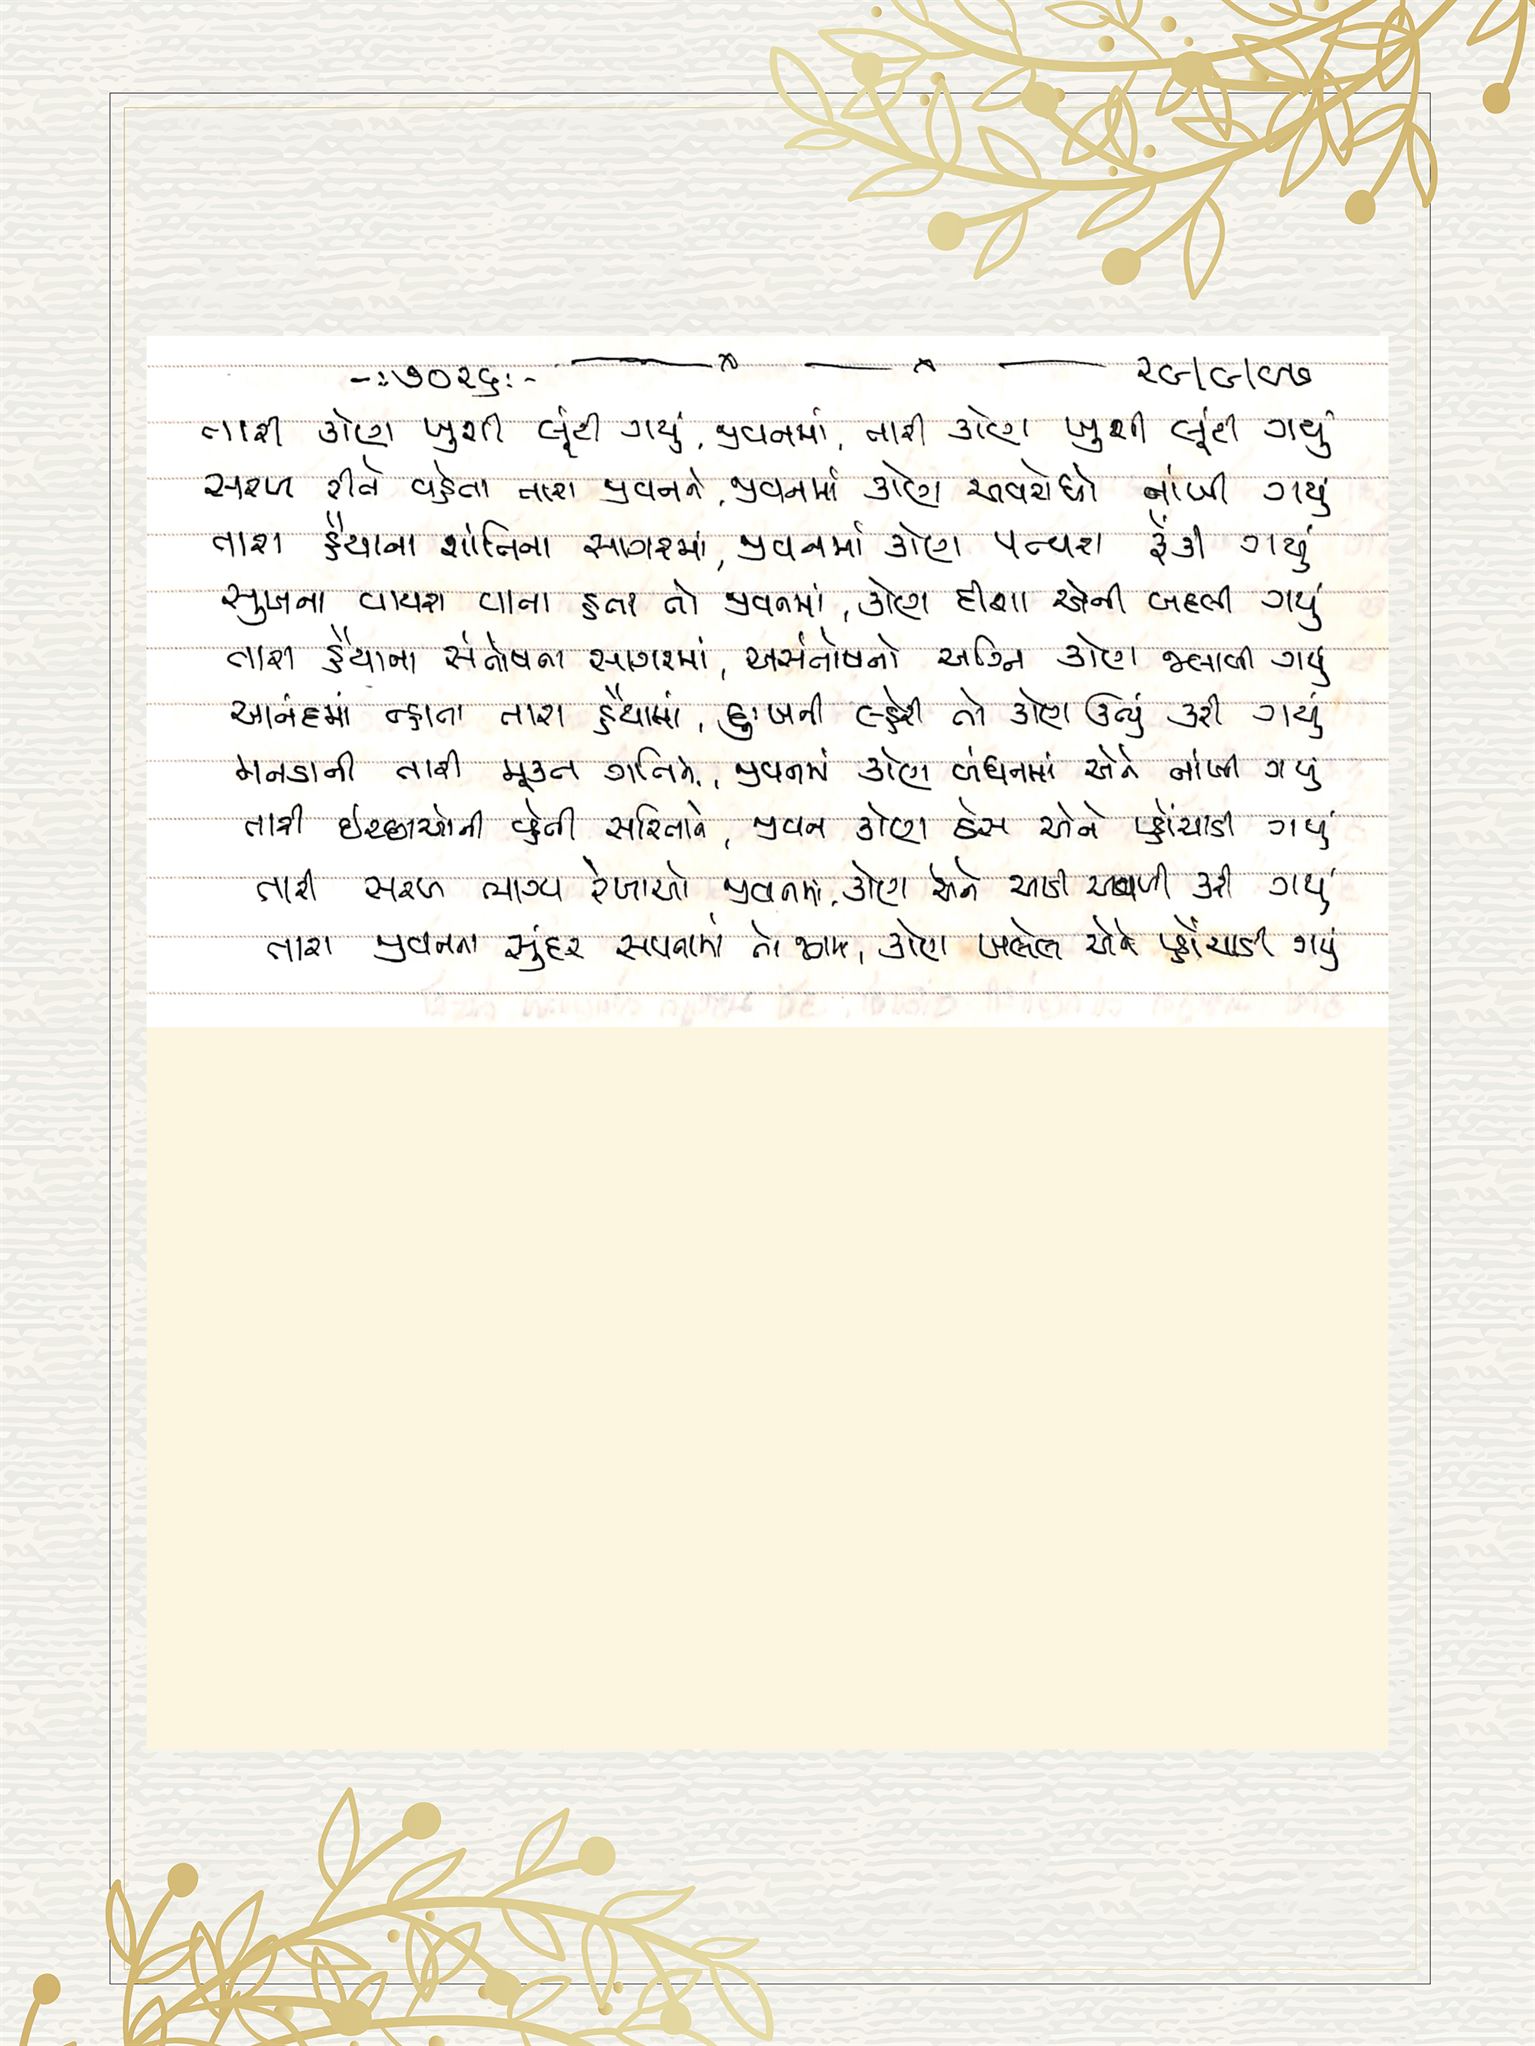 -:૭૦૨૬:- ૨૯/૯/૯૭
તારી કોણ ખુશી લૂંટી ગયું, જીવનમાં, તારી કોણ ખુશી લૂંટી ગયું
સરળ રીતે વહેતા તારા જીવનને, જીવનમાં કોણ અવરોધો નાંખી ગયું
તારા હૈયાના શાંતિના સાગરમાં, જીવનમાં કોણ પત્થરા ફેંકી ગયું
સુખના વાયરા વાતા હતા તો જીવનમાં, કોણ દીશા એની બદલી ગયું
તારા હૈયાના સંતોષના સાગરમાં, અસંતોષનો અગ્નિ કોણ જલાવી ગયું
આનંદમાં ન્હાતા તારા હૈયામાં, દુઃખની લ્હેરી તો કોણ ઉભું કરી ગયું
મનડાની તારી મૂકત ગતિને, જીવનમાં કોણ બંધનમાં એને નાંખી ગયું
તારી ઇચ્છાઓની વ્હેતી સરિતાને, જીવન કોણ ઠેસ એને પ્હોંચાડી ગયું
તારી સરળ ભાગ્ય રેખાઓ જીવનમાં, કોણ એને આડી અવળી કરી ગયું
તારા જીવનના સુંદર સપનામાં તો, કોણ ખલેલ એને પ્હોંચાડી ગયું